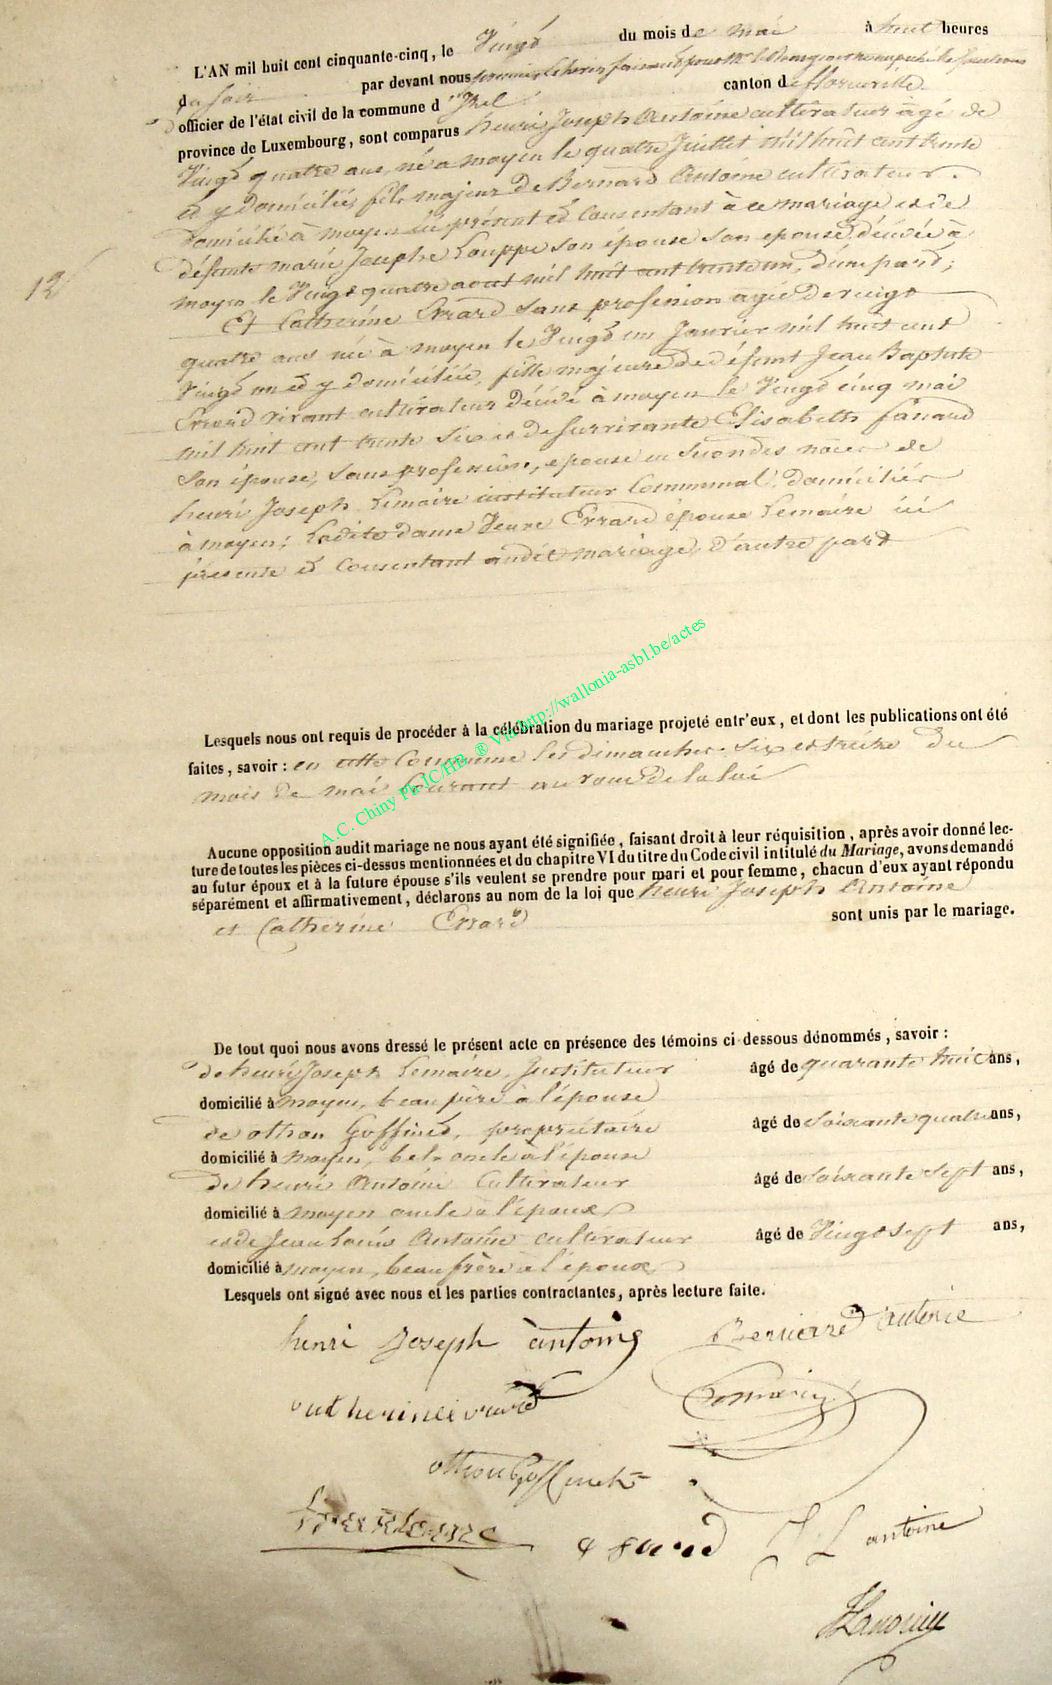 L'AN mil huit cent cinquante-cinq, le Vingt du mois de mai à huit heures
du soir par devant nous
officier de l'état civil de la commune d'Izel canton de florenville
province de Luxembourg, sont comparus henri Joseph Antoine cultivateur âgé de
Vingt quatre ans, né a moyen le quatre Juillet mil huit cent trente
et y domicilié, fils majeur de Bernard Antoine cultivateur
domicilié à moyen ici présent et Consentant à ce mariage et de
défunte marie Josephe Louppe son épouse son epouse décédée à
moyen le Vingt quatre aout mil huit cent trente un, d'une part;
12
Et Catherine Errard Sans profession agée de vingt
quatre ans née à moyen le Vingt un Janvier mil huit cent
trente un et y domiciliée, fille majeure de défunt Jean Baptiste
Errard vivant cultivateur décédé à moyen le Vingt cinq mai
mil huit cent trente six et de survivante Elisabeth
Son épouse, sans profession, epouse en Secondes noces de
henri Joseph Lemaire instituteur Communal, domiciliés
à moyen; Ladite dame Veuve Errard épouse Lemaire ici
présente et Consentant audit mariage, d'autre part
Lesquels nous ont requis de procéder à la célébration du mariage projeté entr'eux, et dont les publications ont été
faites, savoir: en cette Commune les dimanches six et treize du
mois de mai Courant au vœu de la loi
A.C. Chiny Ph JC/HB ® Via http://wallonia-asbl.be/actes
Aucune opposition audit mariage ne nous ayant été signifiée, faisant droit à leur réquisition, après avoir donné lec-
ture de toutes les pièces ci-dessus mentionnées et du chapitre VI du titre du Code civil intitulé du Mariage, avons demandé
au futur époux et à la future épouse s'ils veulent se prendre pour mari et pour femme, chacun d'eux ayant répondu
séparément et affirmativement, déclarons au nom de la loi que henri Joseph Antoine
et Catherine Errard sont unis par le mariage.
De tout quoi nous avons dressé le présent acte en présence des témoins ci-dessous dénommés, savoir:
de henri Joseph Lemaire, Instituteur âgé de quarante huit ans,
domicilié à moyen, beau père à l'épouse
de othon Goffinet, propriétaire âgé de Soixante quatre ans,
domicilié à moyen, bel oncle à l'épouse
de henri Antoine Cultivateur âgé de soixante sept ans,
domicilié à moyen oncle à l'époux
et de Jean Louis Antoine cultivateur âgé de Vingt sept ans,
domicilié à moyen, beau frère à l'époux
Lesquels ont signé avec nous et les parties contractantes, après lecture faite.
henri Joseph antoine Bernard antoine
catherine errard
othon Goffinet
J L antoine